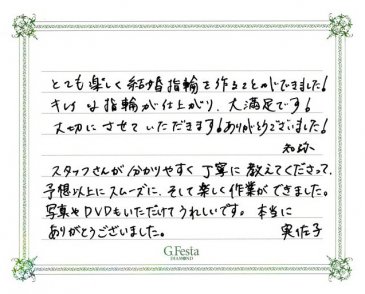 とても楽しく結婚指輪を作ることができました!
キレイな指輪が仕上がり、大満足です!
大切にさせていただきます!ありがとうございました!
スタッフさんが分かりやすく丁寧に教えてくださって、
予想以上にスムーズに、そして楽しく作業ができました。
写真やDVDもいただけてうれしいです。本当に
ありがとうございました。 実佐子
G.Festa
DIAMOND